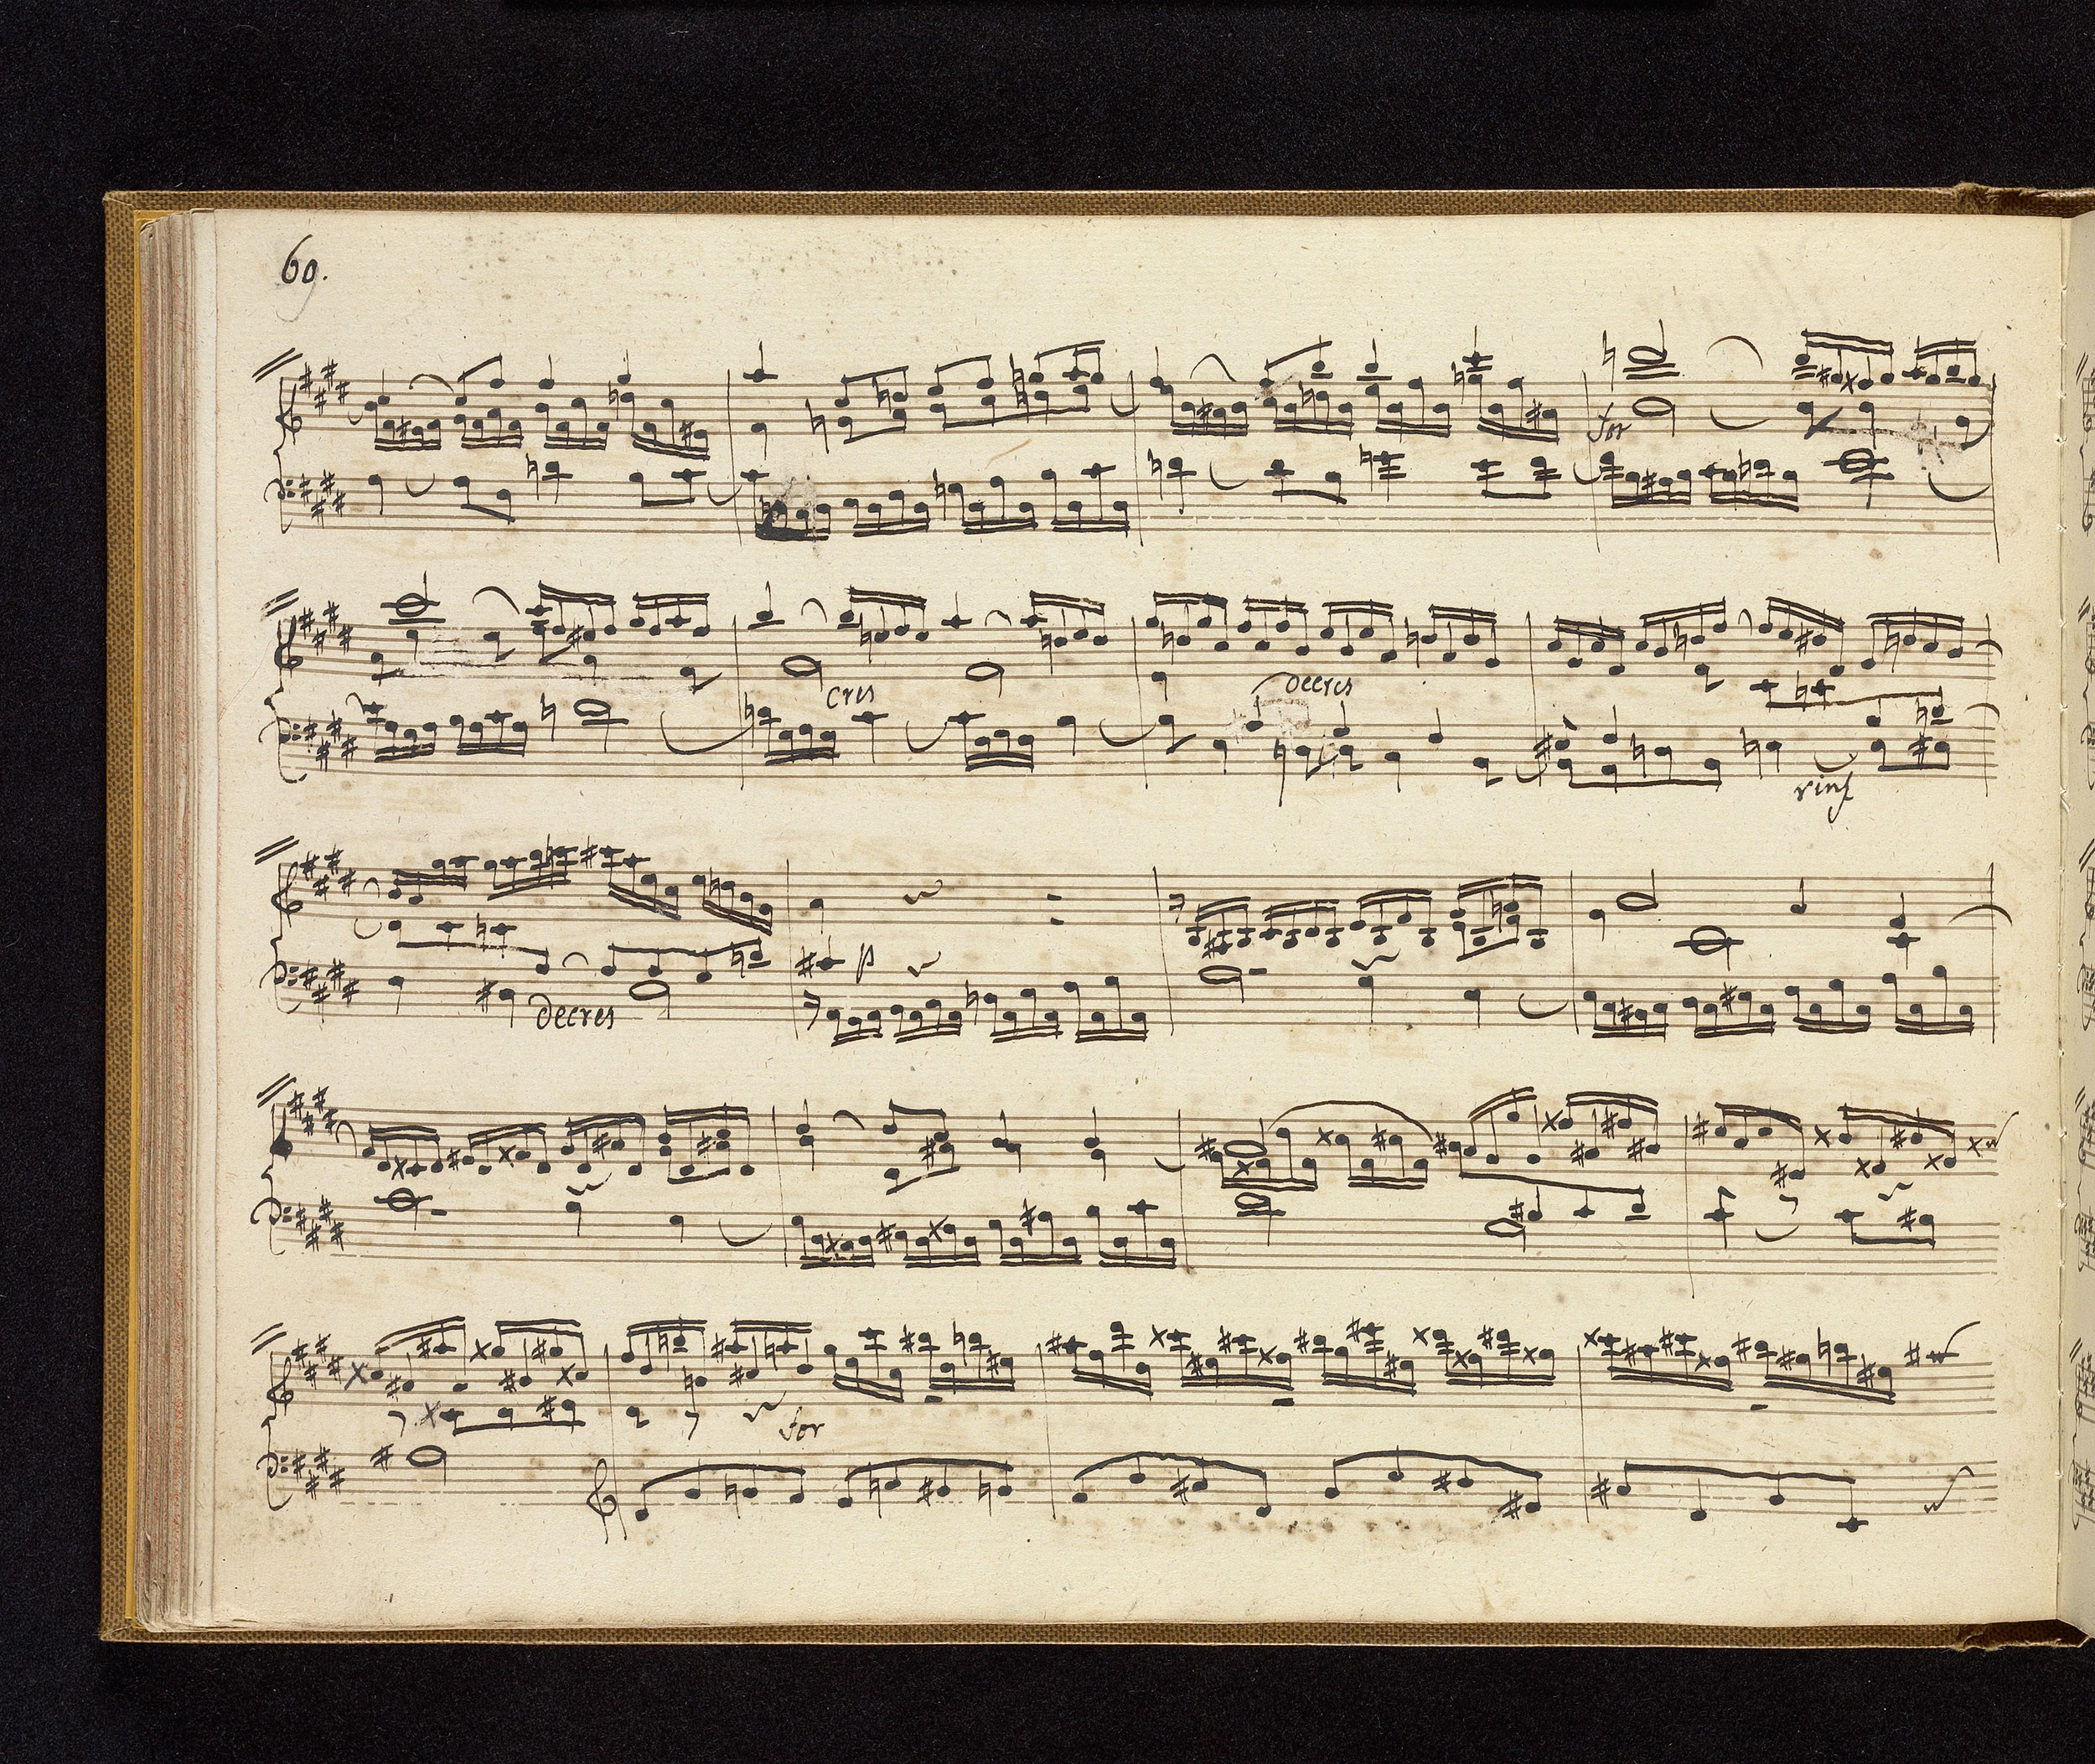 69.
for
cres
decres
rinf
decres
p
for